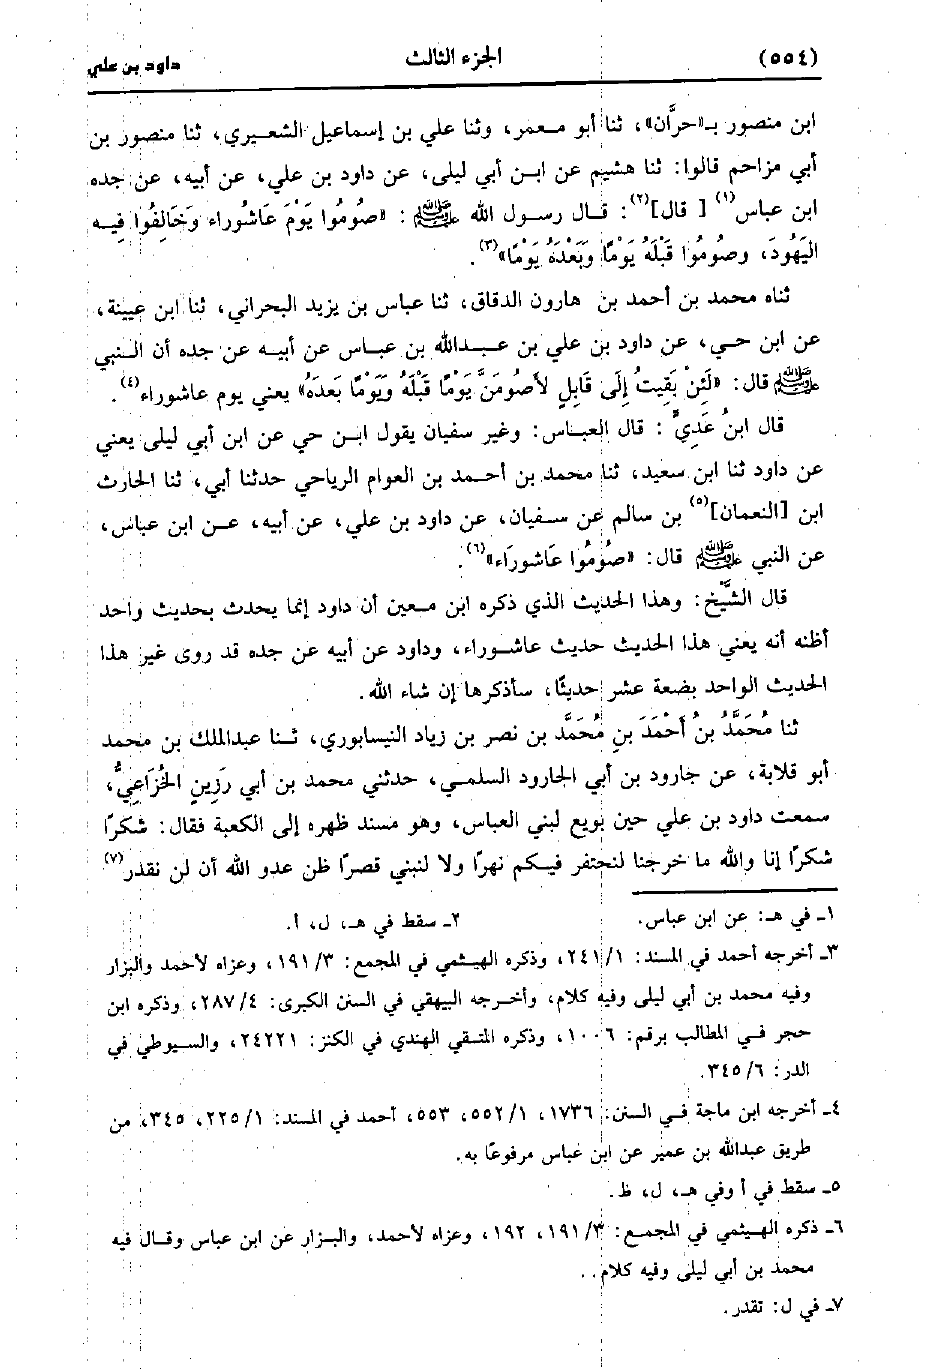 (٥٥٤) الجزء الثالث داود بن علي
ابن منصور بـ«حرَّان»، ثنا أبو معمر، وثنا علي بن إسماعيل الشعيري، ثنا منصور بن
أبي مزاحم قالوا: ثنا هشيم عن ابن أبي ليلى، عن داود بن علي، عن أبيه، عن جده
ابن عباس(١) [ قال](٢): قال رسول الله ﷺ : «صُومُوا يَوْمَ عَاشُوراء وَخَالِفُوا فِيه
اليَهُودَ، وصُومُوا قَبْلَهُ يَوْمًا وَبَعْدَهُ يَوْمًا»(٣).
ثناه محمد بن أحمد بن هارون الدقاق، ثنا عباس بن يزيد البحراني، ثنا ابن عيينة،
عن ابن حي، عن داود بن علي بن عبدالله بن عباس عن أبيه عن جده أن النبي
ﷺ قال: «لَئِنْ بَقِيتُ إِلَى قَابِلٍ لأَصُومَنَّ يَوْمًا قَبْلَهُ وَيَوْمًا بَعدَهُ» يعني يوم عاشوراء(٤).
قال ابنُ عَدِيٍّ : قال العباس: وغير سفيان يقول ابن حي عن ابن أبي ليلى يعني
عن داود ثنا ابن سعيد، ثنا محمد بن أحمد بن العوام الرياحي حدثنا أبي، ثنا الحارث
ابن [النعمان](٥) بن سالم عن سفيان، عن داود بن علي، عن أبيه، عن ابن عباس،
عن النبي ﷺ قال: «صُومُوا عَاشُورَاء»(٦).
قال الشَّيْخ: وهذا الحديث الذي ذكره ابن معين أن داود إنما يحدث بحديث واحد
أظنه أنه يعني هذا الحديث حديث عاشوراء، وداود عن أبيه عن جده قد روى غير هذا
الحديث الواحد بضعة عشر حديثًا، سأذكرها إن شاء الله.
ثنا مُحَمَّدُ بنُ أَحْمَدَ بنِ مُحَمَّد بن نصر بن زياد النيسابوري، ثنا عبدالملك بن محمد
أبو قلابة، عن جارود بن أبي الجارود السلمي، حدثني محمد بن أبي رَزِينِ الخُزَاعِيُّ،
سمعت داود بن علي حين بويع لبني العباس، وهو مسند ظهره إلى الكعبة فقال: شكرًا
شكرًا إنا والله ما خرجنا لنحتفر فيكم نهرًا ولا لنبني قصرًا ظن عدو الله أن لن نقدر(٧)
١ـ في هـ: عن ابن عباس. ٢ـ سقط في هـ، ل، أ.
٣ـ أخرجه أحمد في المسند: ١/ ٢٤١، وذكره الهيثمي في المجمع: ٣/ ١٩١، وعزاه لأحمد والبزار
وفيه محمد بن أبي ليلى وفيه كلام، وأخرجه البيهقي في السنن الكبرى: ٤/ ٢٨٧، وذكره ابن
حجر في المطالب برقم: ١٠٠٦، وذكره المتقي الهندي في الكنز: ٢٤٢٢١، والسيوطي في
الدر: ٦/ ٣٤٥.
٤ـ أخرجه ابن ماجة في السنن: ١٧٣٦، ١/ ٥٥٢، ٥٥٣، أحمد في المسند: ١/ ٢٢٥، ٣٤٥، من
طريق عبدالله بن عمير عن ابن عباس مرفوعًا به.
٥ـ سقط في أ وفي هـ، ل، ظ.
٦ـ ذكره الهيثمي في المجمع: ٣/ ١٩١، ١٩٢، وعزاه لأحمد، والبزار عن ابن عباس وقال فيه
محمد بن أبي ليلى وفيه كلام..
٧ـ في ل: تقدر.